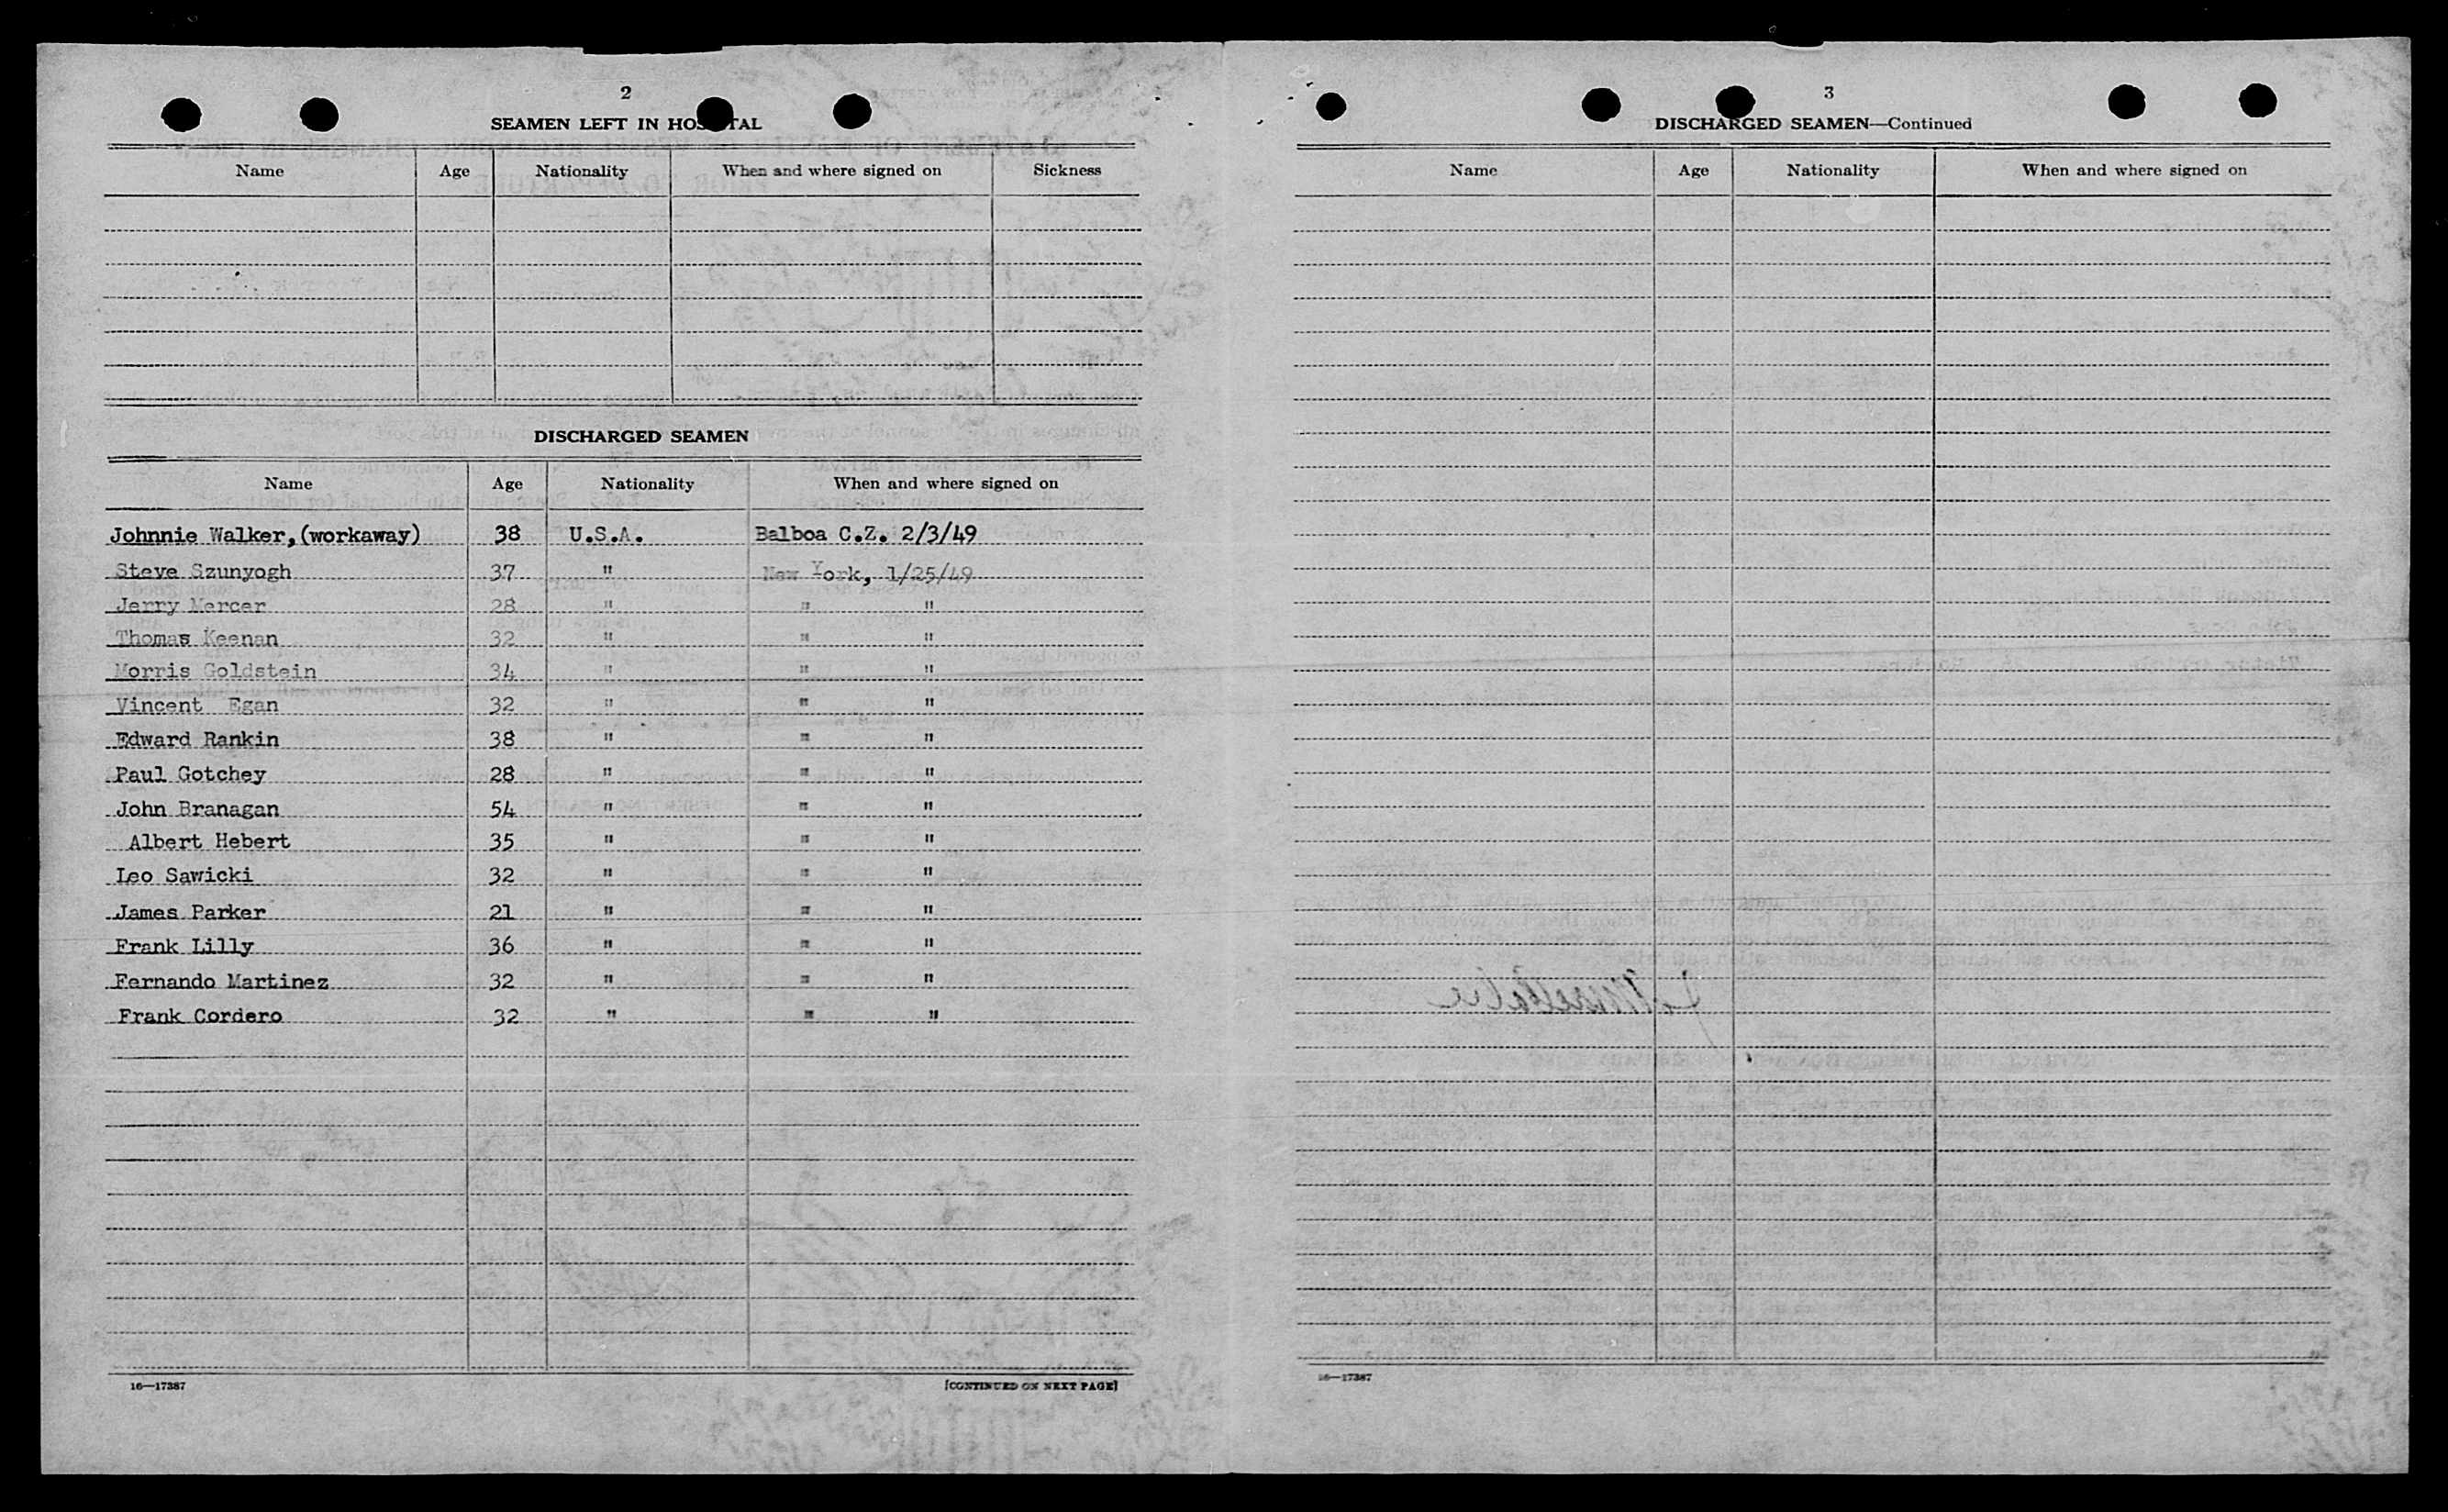 2
SEAMEN LEFT IN HOS TAL
Name Age Nationality When and where signed on Sickness
DISCHARGED SEAMEN
Name Age Nationality When and where signed on
Johnnie Walker,(workaway) 38 U.S.A. Balboa C.Z. 2/3/49
Steve Szunyogh 37 " New York, 1/25/49
Jerry Mercer 28 " " "
Thomas Keenan 32 " " "
Morris Goldstein 34 " " "
Vincent Egan 32 " " "
Edward Rankin 38 " " "
Paul Gotchey 28 " " "
John Branagan 54 " " "
Albert Hebert 35 " " "
Leo Sawicki 32 " " "
James Parker 21 " " "
Frank Lilly 36 " " "
Fernando Martinez 32 " " "
Frank Cordero 32 " " "
16—17387 [CONTINUED ON NEXT PAGE]
3
DISCHARGED SEAMEN—Continued
Name Age Nationality When and where signed on
16—17387